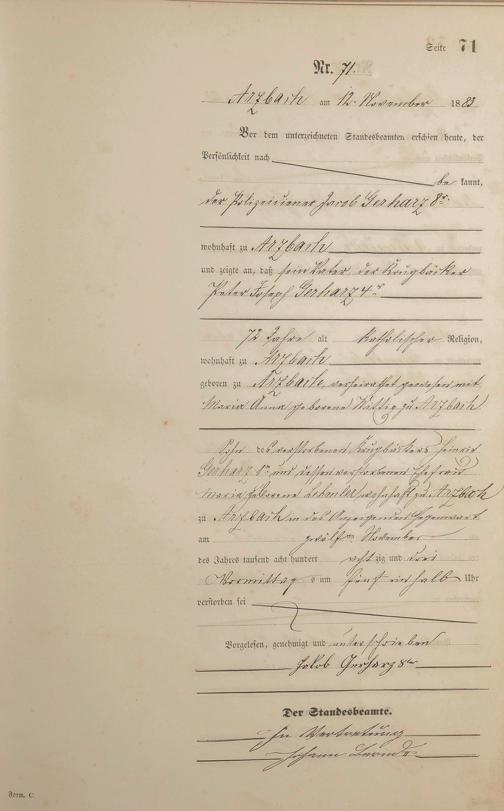 Seite 71
Nr. 71.
Arzbach am 12. November 1883
Vor dem unterzeichneten Standesbeamten erschien heute, der
Persönlichkeit nach
be kannt,
der Polizeidiener Jacob Gerharz 8r
wohnhaft zu Arzbach
und zeigte an, daß sein Vater der Krugbäcker
Peter Joseph Gerharz 4r
72 Jahre alt katholischer Religion,
wohnhaft zu Arzbach
geboren zu Arzbach, verheirathet gewesen mit
Maria Anna geborene zu Arzbach
Sohn des verstorbenen Krugbäckers
Gerharz und dessen verstorbenen Ehefrau
Maria geborene wohnhaft zu Arzbach
zu Arzbach in des Gegenwart
am zwölften November
des Jahres tausend acht hundert acht zig und drei
Vormittag s um fünf ein halb Uhr
verstorben sei
Vorgelesen, genehmigt und unterschrieben
Jakob Gerharz 8ter
Der Standesbeamte.
In Vertretung
Johann
Form. C.